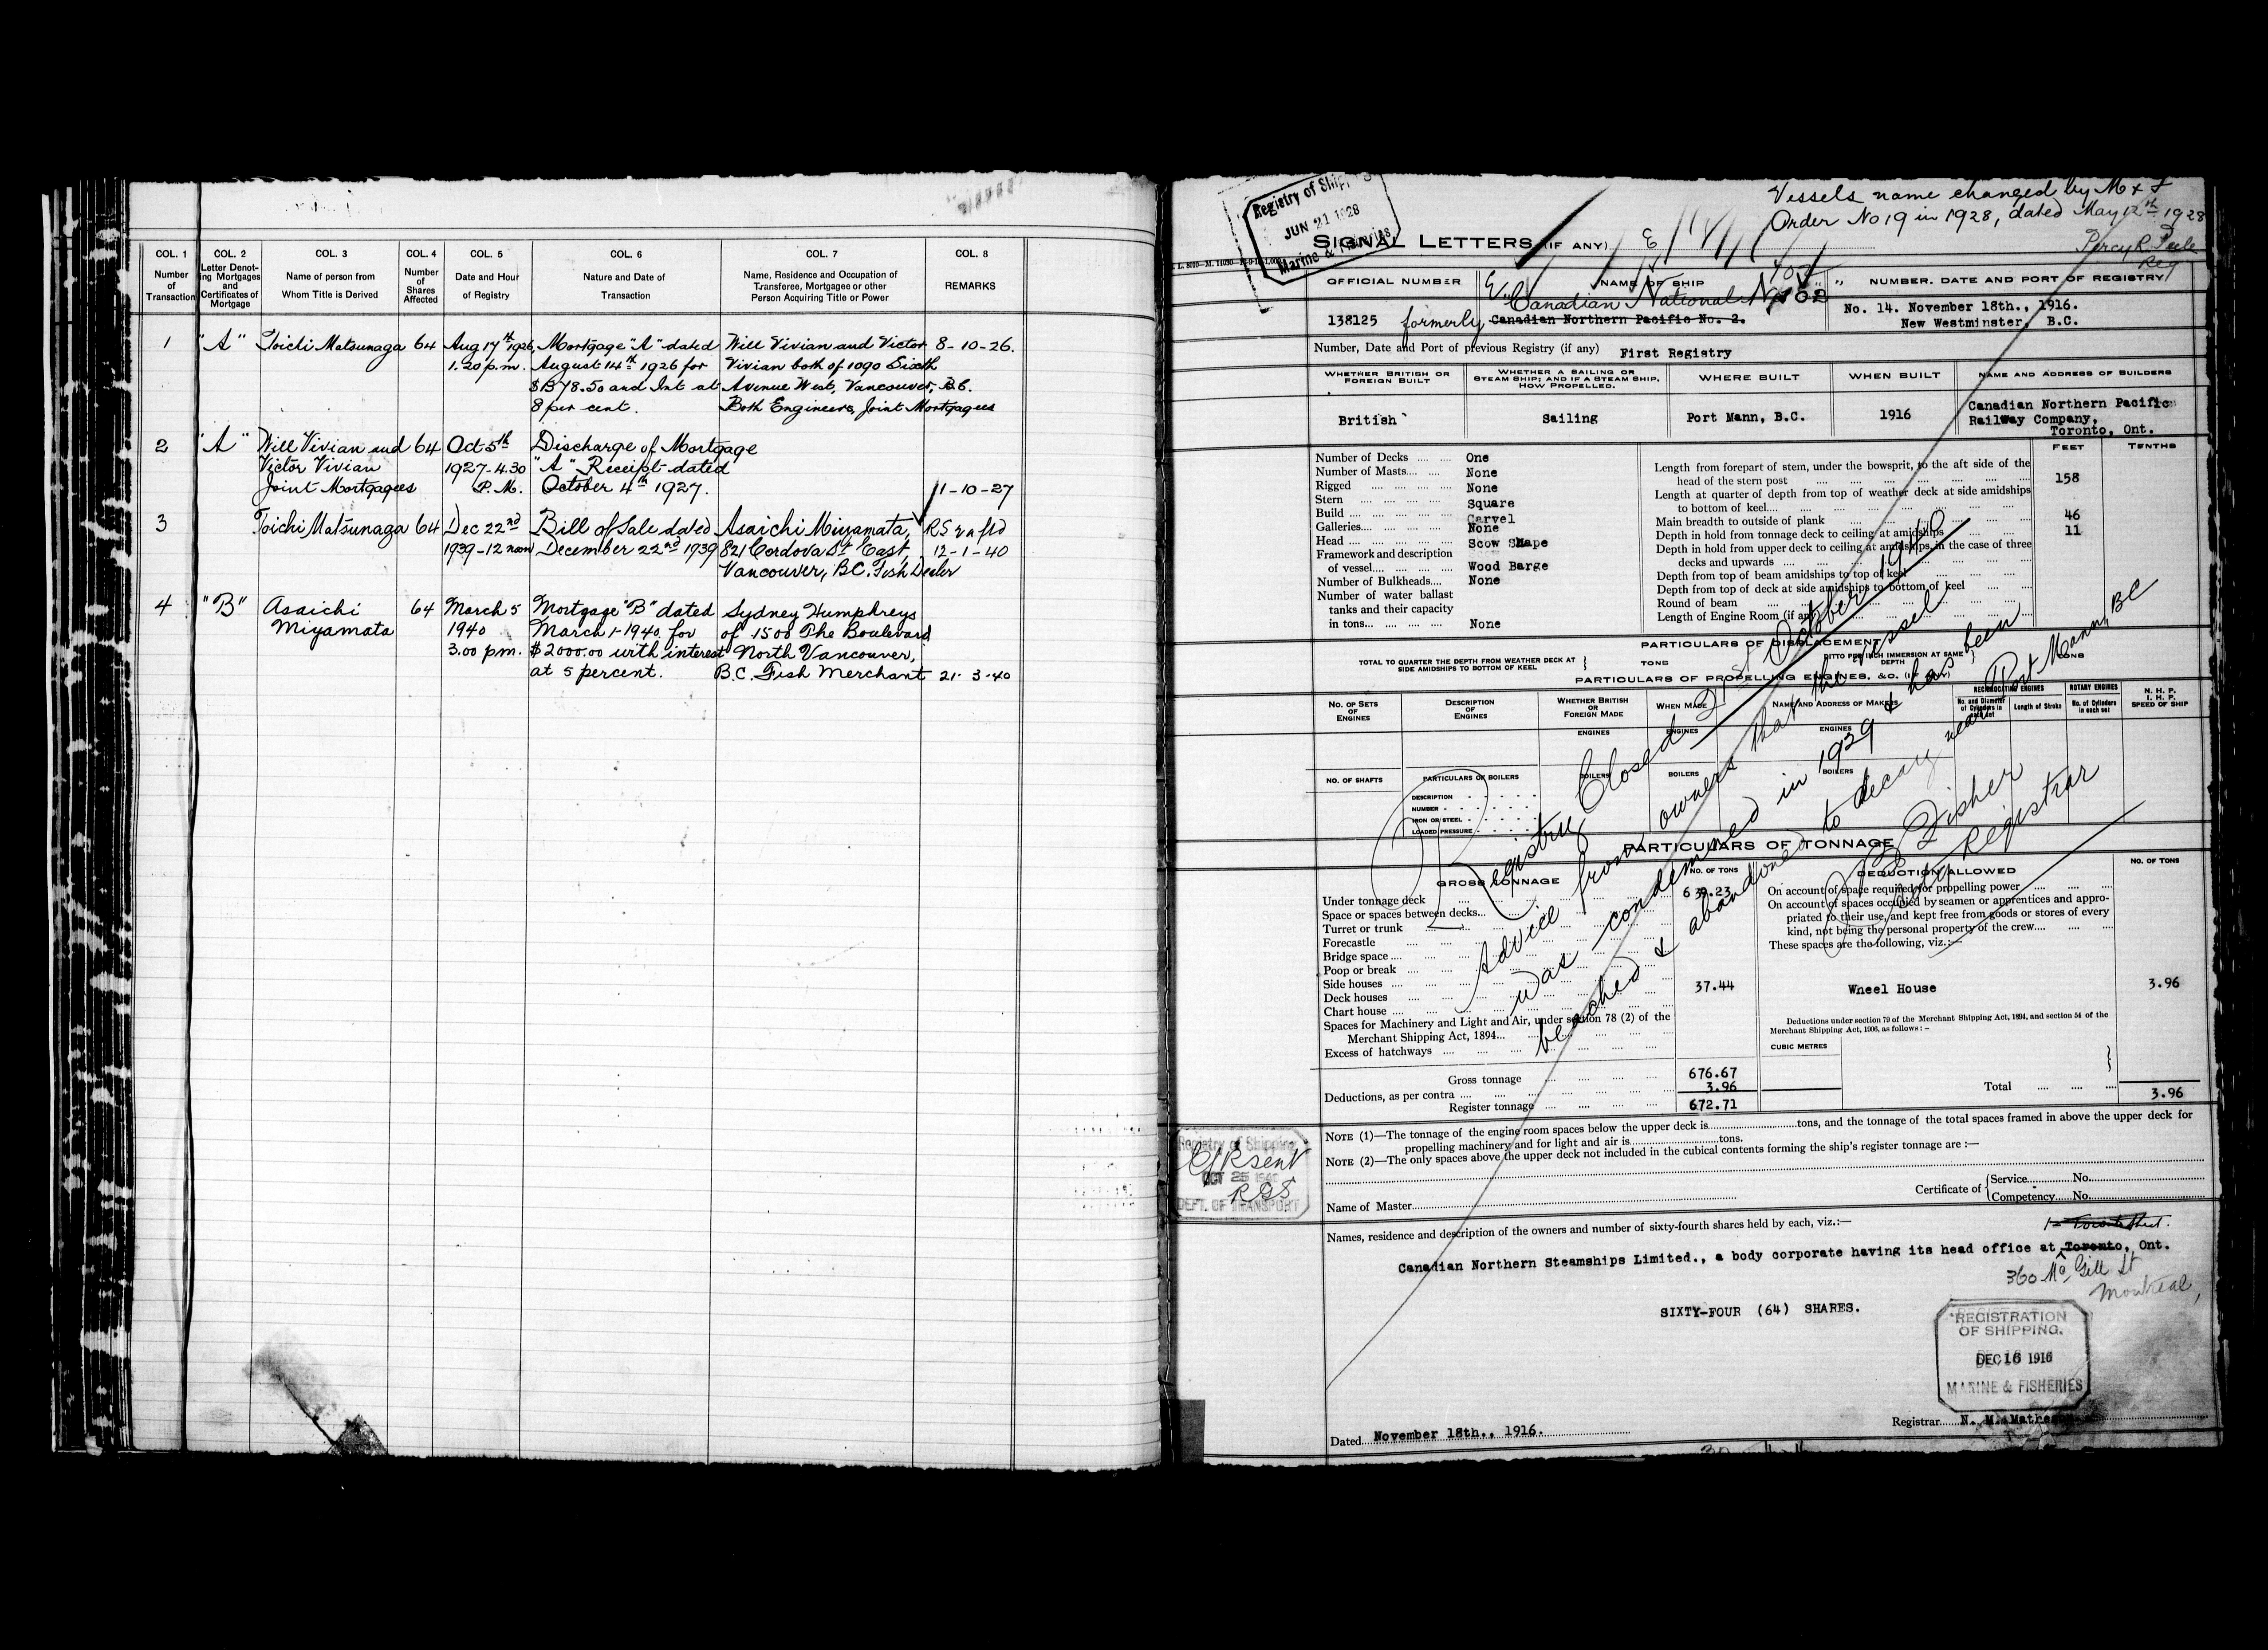 COL. 1 COL. 2 COL. 3 COL. 4 COL. 5 COL. 6 COL. 7 COL. 8
Number of Transaction
Letter Denoting Mortgages and Certificates of Mortgage
Name of person from Whom Title is Derived
Number of Shares Affected
Date and Hour of Registry
Nature and Date of Transaction
Name, Residence and Occupation of Transferee, Mortgagee or other Person Acquiring Title or Power
REMARKS
1 "A" Toichi Matsunaga 64 Aug 17th 1926, Mortgage "A" dated Will Vivian and Victor 8-10-26.
1.20 p.m. August 14th 1926 for Vivian both of 1090 Sixth
and Int at Avenue West, Vancouver, B.C.
8 per cent. Both Engineers, Joint Mortgagees
2 "A" Will Vivian and 64 Oct 5th Discharge of Mortgage
Victor Vivian 1927-4.30 "A" Receipt dated
Joint Mortgagees P.M. October 4th 1927. 11-10-27
3 Toichi Matsunaga 64 Dec 22nd Bill of Sale dated Asaichi Miyamata,
1939-12 noon December 22nd 1939 821 Cordova St East, 12-1-40
Vancouver, B.C. Fish Dealer
4 "B" Asaichi 64 March 5 Mortgage "B" dated Sydney Humphreys
Miyamata 1940 March 1-1940 for of 1500 The Boulevard
3.00 pm. $2000.00 with interest North Vancouver,
at 5 percent. B.C. Fish Merchant 21-3-40
Registry of Shipping
JUN 21 1928
Marine & Fisheries
Vessels name changed by M & F
Order No 19 in 1928, dated May 12th 1928
Percy R. Peele
Reg
SIGNAL LETTERS (IF ANY)
OFFICIAL NUMBER NAME OF SHIP NUMBER, DATE AND PORT OF REGISTRY
"Canadian National No
138125 formerly Canadian Northern Pacific No. 2. No. 14. November 18th., 1916.
New Westminster, B.C.
Number, Date and Port of previous Registry (if any) First Registry
WHETHER BRITISH OR FOREIGN BUILT
WHETHER A SAILING OR STEAM SHIP; AND IF A STEAM SHIP, HOW PROPELLED.
WHERE BUILT WHEN BUILT NAME AND ADDRESS OF BUILDERS
British Sailing Port Mann, B.C. 1916 Canadian Northern Pacific
Railway Company,
Toronto, Ont.
FEET TENTHS
Number of Decks One
Number of Masts None
Rigged None
Stern Square
Build Carvel
Galleries None
Head Scow Shape
Framework and description
of vessel Wood Barge
Number of Bulkheads None
Number of water ballast
tanks and their capacity
in tons None
Length from forepart of stem, under the bowsprit, to the aft side of the
head of the stern post 158
Length at quarter of depth from top of weather deck at side amidships
to bottom of keel
Main breadth to outside of plank 46
Depth in hold from tonnage deck to ceiling at amidships 11
Depth in hold from upper deck to ceiling at amidships, in the case of three
decks and upwards
Depth from top of beam amidships to top of keel
Depth from top of deck at side amidships to bottom of keel
Round of beam
Length of Engine Room (if any)
PARTICULARS OF DISPLACEMENT
TOTAL TO QUARTER THE DEPTH FROM WEATHER DECK AT SIDE AMIDSHIPS TO BOTTOM OF KEEL } TONS
DITTO PER INCH IMMERSION AT SAME DEPTH TONS
PARTICULARS OF PROPELLING ENGINES, &C. (IF ANY)
No. OF SETS OF ENGINES
DESCRIPTION OF ENGINES
WHETHER BRITISH OR FOREIGN MADE
WHEN MADE
NAME AND ADDRESS OF MAKERS
RECIPROCATING ENGINES
No. and Diameter of Cylinders in each set
Length of Stroke
ROTARY ENGINES
No. of Cylinders in each set
N. H. P.
I. H. P.
SPEED OF SHIP
ENGINES ENGINES ENGINES
NO. OF SHAFTS PARTICULARS OF BOILERS BOILERS BOILERS BOILERS
DESCRIPTION
NUMBER
IRON OR STEEL
LOADED PRESSURE
Registry Closed 21st October 1940
Advice from owners that the vessel
was condemned in 1929 & has been
beached & abandoned to decay near Port Mann, BC
Fisher
Deputy Registrar
PARTICULARS OF TONNAGE
GROSS TONNAGE NO. OF TONS DEDUCTION ALLOWED NO. OF TONS
Under tonnage deck 639.23
Space or spaces between decks
Turret or trunk
Forecastle
Bridge space
Poop or break
Side houses 37.44
Deck houses
Chart house
Spaces for Machinery and Light and Air, under section 78 (2) of the
Merchant Shipping Act, 1894
Excess of hatchways
Gross tonnage 676.67
Deductions, as per contra 3.96
Register tonnage 672.71
On account of space required for propelling power
On account of spaces occupied by seamen or apprentices and appro-
priated to their use, and kept free from goods or stores of every
kind, not being the personal property of the crew
These spaces are the following, viz.:—
Wheel House 3.96
Deductions under section 79 of the Merchant Shipping Act, 1894, and section 54 of the
Merchant Shipping Act, 1906, as follows:—
CUBIC METRES
Total 3.96
NOTE (1)—The tonnage of the engine room spaces below the upper deck is tons, and the tonnage of the total spaces framed in above the upper deck for
propelling machinery and for light and air is tons.
NOTE (2)—The only spaces above the upper deck not included in the cubical contents forming the ship's register tonnage are:—
Registry of Shipping
C/R sent
OCT 25 1940
DEPT. OF TRANSPORT
Name of Master Certificate of { Service No.
Competency No.
Names, residence and description of the owners and number of sixty-fourth shares held by each, viz.:—
Canadian Northern Steamships Limited., a body corporate having its head office at Toronto, Ont.
360 McGill St
Montreal,
SIXTY-FOUR (64) SHARES.
REGISTRATION
OF SHIPPING.
DEC 16 1916
MARINE & FISHERIES
Dated November 18th., 1916. Registrar N. M.